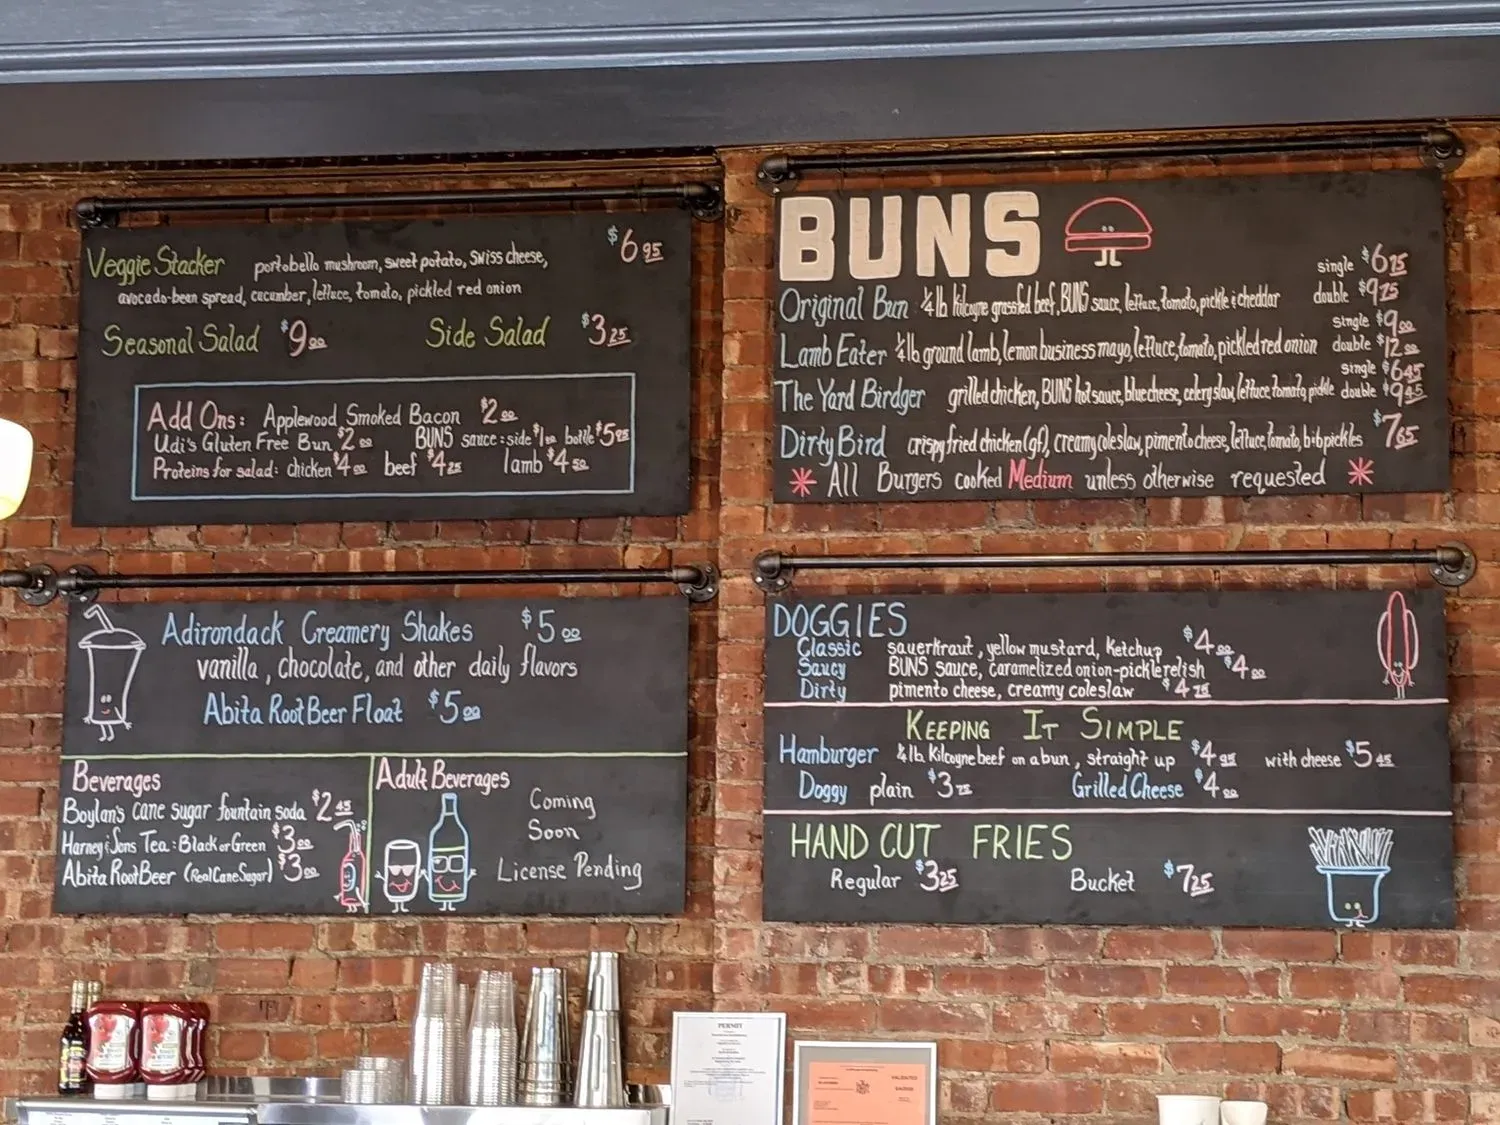 Veggie Stacker portobello mushroom, sweet potato, swiss cheese, $6 95
avocado-bean spread, cucumber, lettuce, tomato, pickled red onion
Seasonal Salad $9 00 Side Salad $3 25
Add Ons: Applewood Smoked Bacon $2 00
Udi's Gluten Free Bun $2 00 BUNS sauce: side $1 00 bottle $5 95
Proteins for salad: chicken $4 00 beef $4 25 lamb $4 50
BUNS
Original Bun 1/4 lb kilcoyne grassfed beef, BUNS sauce, lettuce, tomato, pickle & cheddar
single $6 75
double $9 75
Lamb Eater 1/4 lb ground lamb, lemon business mayo, lettuce, tomato, pickled red onion
single $9 00
double $12 00
The Yard Birdger grilled chicken, BUNS hot sauce, blue cheese, celery slaw, lettuce, tomato, pickle
single $6 45
double $9 45
Dirty Bird crispy fried chicken (gf), creamy coleslaw, pimento cheese, lettuce, tomato, b+b pickles $7 65
* All Burgers cooked Medium unless otherwise requested *
Adirondack Creamery Shakes $5 00
vanilla, chocolate, and other daily flavors
Abita Root Beer Float $5 00
Beverages
Boylan's cane sugar fountain soda $2 45
Harney & Sons Tea: Black or Green $3 00
Abita Root Beer (Real Cane Sugar) $3 00
Adult Beverages
Coming
Soon
License Pending
DOGGIES
Classic sauerkraut, yellow mustard, Ketchup $4 00
Saucy BUNS sauce, caramelized onion-pickle relish $4 00
Dirty pimento cheese, creamy coleslaw $4 75
KEEPING IT SIMPLE
Hamburger 1/4 lb. Kilcoyne beef on a bun, straight up $4 95 with cheese $5 45
Doggy plain $3 75 Grilled Cheese $4 00
HAND CUT FRIES
Regular $3 25 Bucket $7 25
PERMIT